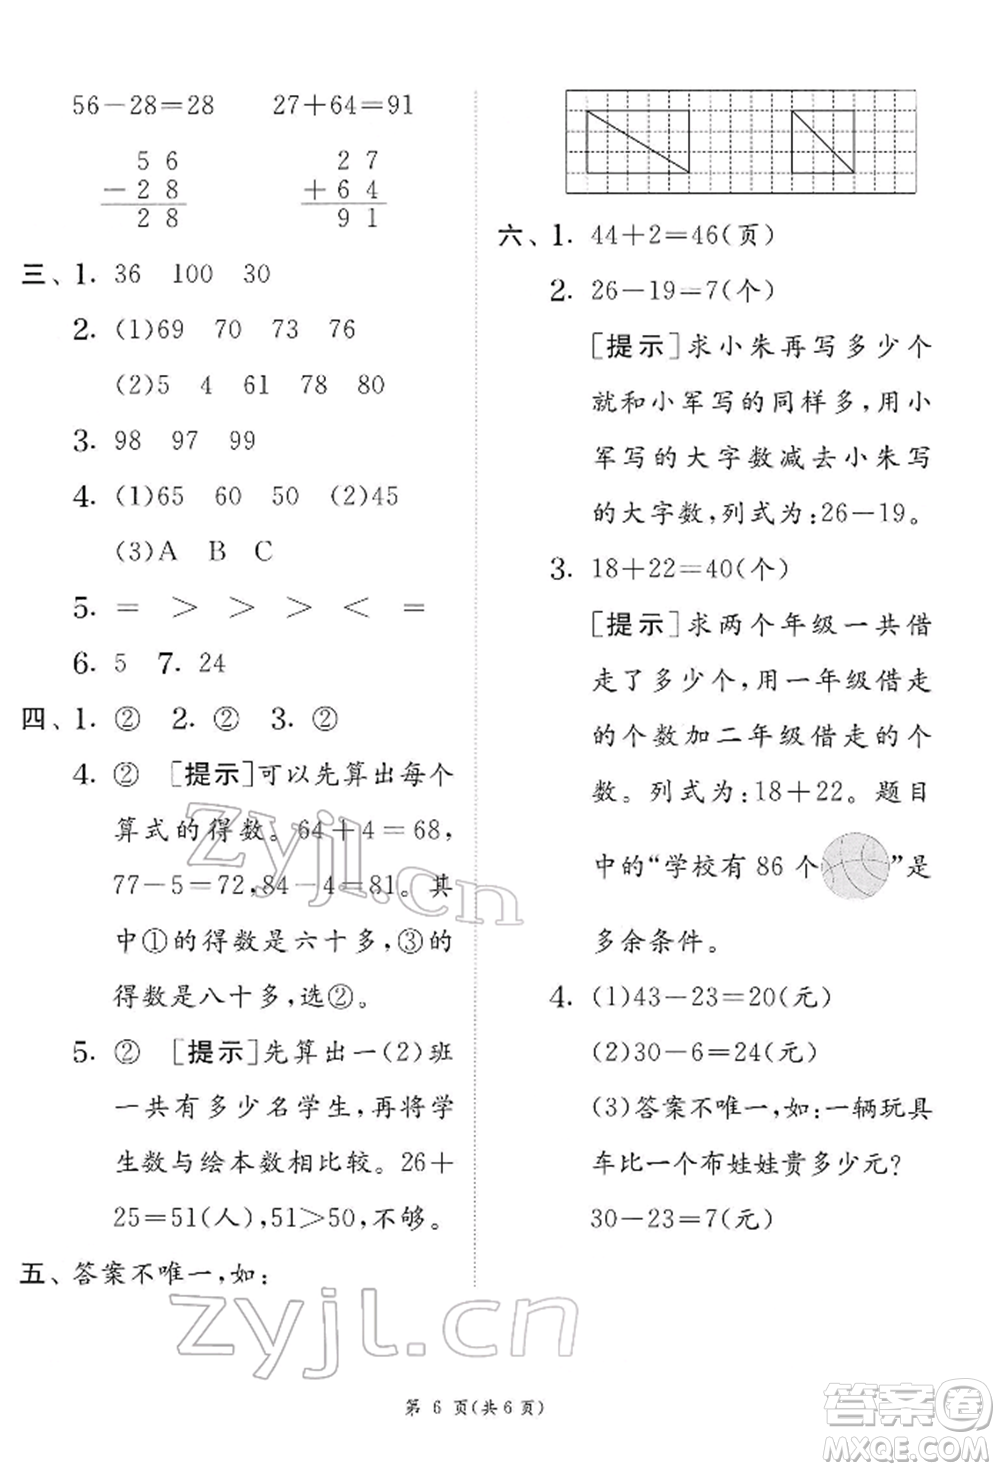 56－28＝28 27＋64＝91
5 6 2 7
－2 8 ＋6 4
2 8 9 1
三、1. 36 100 30
2. (1)69 70 73 76
(2)5 4 61 78 80
3. 98 97 99
4. (1)65 60 50 (2)45
(3)A B C
5. ＝ ＞ ＞ ＞ ＜ ＝
6. 5 7. 24
四、1. ② 2. ② 3. ②
4. ② [提示]可以先算出每个
算式的得数。64＋4＝68,
77－5＝72,84－4＝81。其
中①的得数是六十多,③的
的得数是八十多,选②。
5. ② [提示]先算出一(2)班
一共有多少名学生,再将学
生数与绘本数相比较。26＋
25＝51(人),51＞50,不够。
五、答案不唯一,如:
六、1. 44＋2＝46(页)
2. 26－19＝7(个)
[提示]求小朱再写多少个
就和小军写的同样多,用小
军写的大字数减去小朱写
的大字数,列式为:26－19。
3. 18＋22＝40(个)
[提示]求两个年级一共借
走了多少个,用一年级借走
的个数加二年级借走的个
数。列式为:18＋22。题目
中的“学校有 86 个”是
多余条件。
4. (1)43－23＝20(元)
(2)30－6＝24(元)
(3)答案不唯一,如:一辆玩具
车比一个布娃娃贵多少元?
30－23＝7(元)
第 6 页(共6页)
zyjl.cn
zyjl.cn
答案圈
MXQE.COM